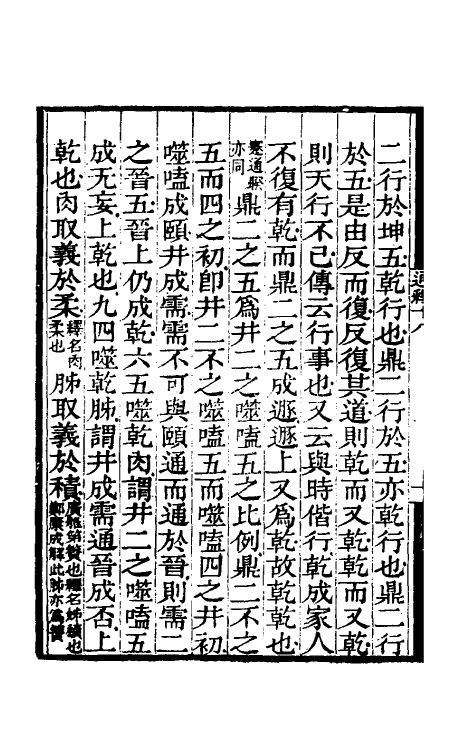 二行於坤五乾行也鼎二行於五亦乾行也鼎二行
於五是由反而復反復其道則乾而又乾乾而又乾
則天行不已傳云行事也又云與時偕行乾成家人
不復有乾而鼎二之五成遯遯上又爲乾故乾乾也
蹇通睽亦同鼎二之五爲井二之噬嗑五之比例鼎二不之
五而四之初卽井二不之噬嗑五而噬嗑四之井初
噬嗑成頤井成需需不可與頤通而通於晉則需二
之晉五晉上仍成乾六五噬乾肉謂井二之噬嗑五
成无妄上乾也九四噬乾胏謂井成需通晉成否上
乾也肉取義於柔釋名肉柔也胏取義於積廣雅笫簀也釋名姊積也鄭康成解此胏亦爲簀
通釋十八